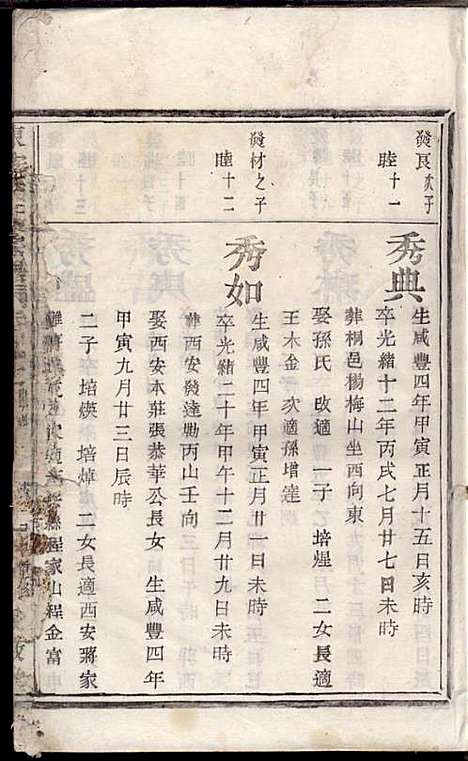 發良次子
睦十一
秀典
生咸豐四年甲寅正月十五日亥時
卒光緒十二年丙戌七月廿七日未時
葬桐邑楊梅山坐西向東
娶孫氏 改適一子 培煋 二女長適
王木金 次適孫增達
發材之子
睦十二
秀如
生咸豐四年甲寅正月廿一日未時
卒光緒二十年甲午十二月廿九日未時
葬西安發達塢丙山壬向
娶西安本莊張恭華公長女 生咸豐四年
甲寅九月廿三日辰時
二子 培煐 培焯 二女長適西安蔣家
程家山程金富